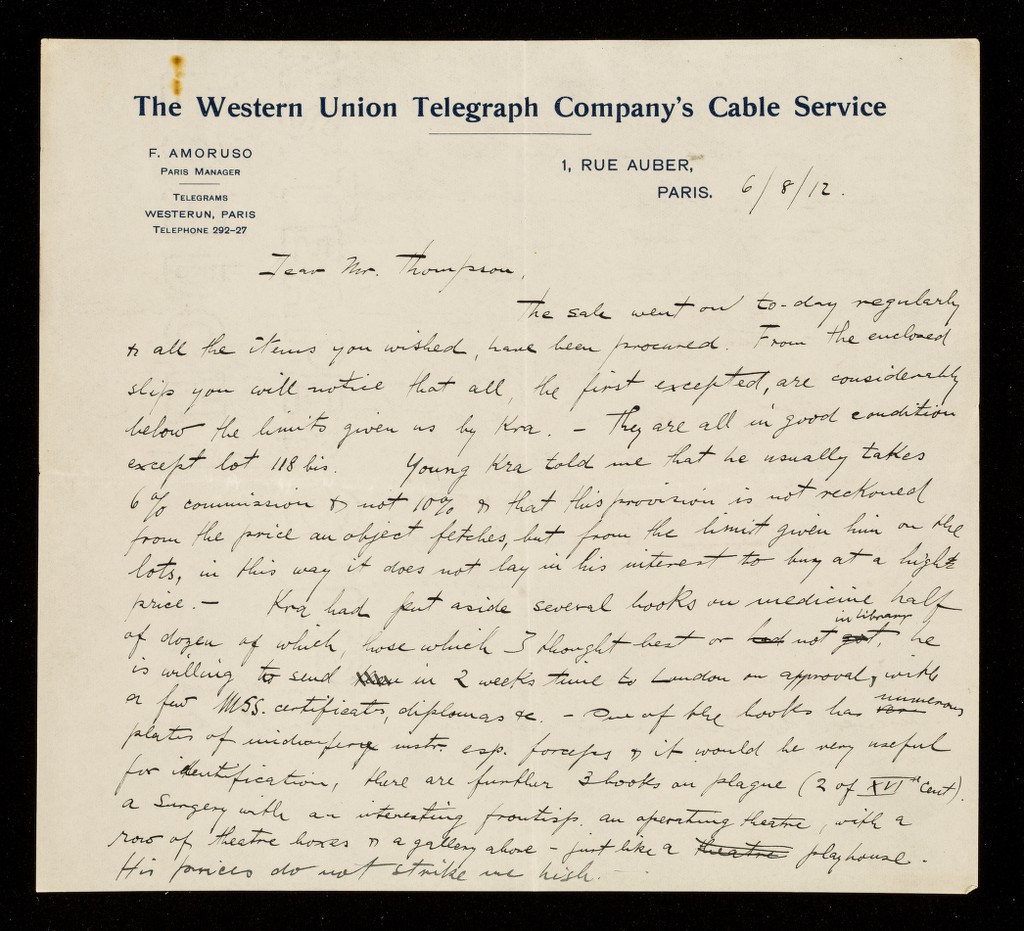 The Western Union Telegraph Company's Cable Service
F. AMORUSO
PARIS MANAGER
TELEGRAMS
WESTERUN, PARIS
TELEPHONE 292-27
1, RUE AUBER,
PARIS. 6/8/12.
Dear Mr. Thompson,
The sale went on to-day regularly
& all the items you wished, have been procured. From the enclosed
slip you will notice that all, the first excepted, are considerably
below the limits given us by Kra. – They are all in good condition
except lot 118 bis. Young Kra told me that he usually takes
6% commission & not 10% & that this provision is not reckoned
from the price an object fetches, but from the limit given him on the
lots, in this way it does not lay in his interest to buy at a high
price. – Kra had put aside several books on medicine half
of dozen of which, those which I thought best or not in library, he
is willing to send in 2 weeks time to London on approval, with
a few MSS. certificates, diplomas &c. – One of the books has numerous
plates of midwifery instr. esp. forceps & it would be very useful
for identification, there are further 3 books on plague (2 of XVIth Cent).
a Surgery with an interesting frontisp. an operating theatre, with a
row of theatre boxes & a gallery above – just like a theatre playhouse.
His prices do not strike me high.